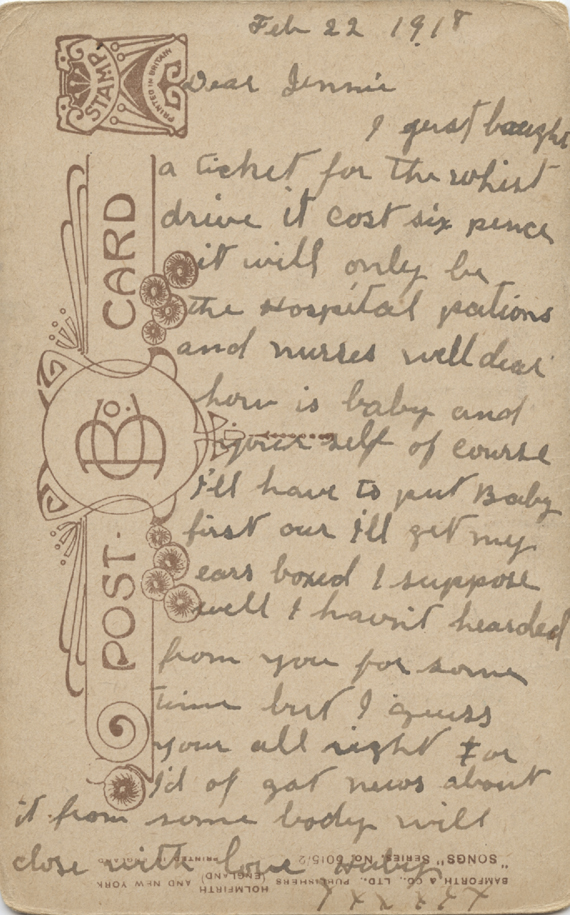 Feb 22 1918
Dear Jennie
I just baught
a ticket for the whist
drive it cost six pence
it will only be
the Hospital pations
and nurses well dear
how is baby and
your self of course
I'll have to put Baby
first our I'll get my
ears boxed I suppose
well I havn't hearded
from you for some
time but I guess
your all right For
I'd of got news about
it from some body will
close with love Huby
XXXXX
STAMP
PRINTED IN BRITAIN
POST-CARD
B. & Co.
BAMFORTH & CO., LTD., PUBLISHERS (ENGLAND) HOLMFIRTH AND NEW YORK
"SONGS" SERIES NO. 5015/2 PRINTED IN ENGLAND